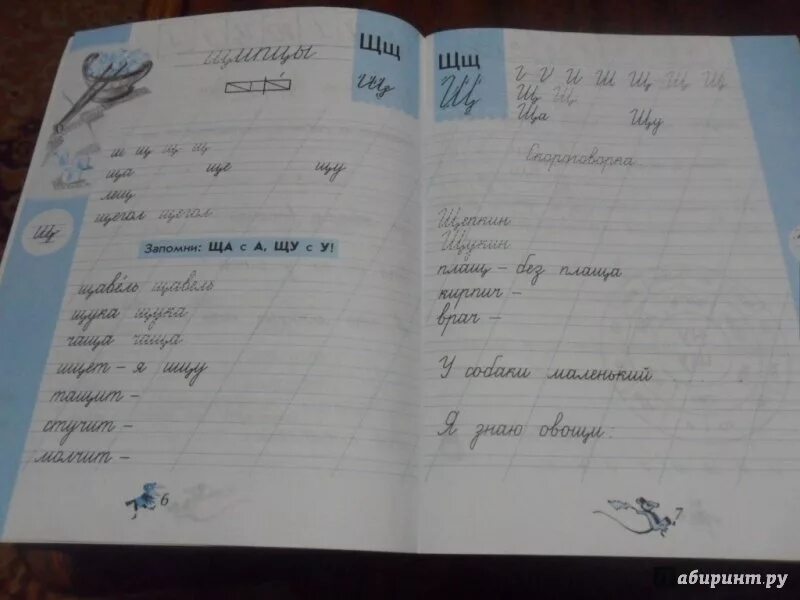 щипцы
Щщ
Щщ
ш щ щ щ
ща ще щу
лещ
щегол щегол
Щ
Запомни: ЩА с А, ЩУ с У!
щаве́ль щавель
щука щука
чаща чаща
ищет – я ищу
тащит –
стучит –
молчит –
6
Щщ
Щ
И Ш Щ Щ Щ
Щ Щ
Ща Щу
Скороговорка
Щепкин
Щукин
плащ – без плаща
кирпич –
врач –
У собаки маленький
Я знаю овощи:
7
абиринт.ру